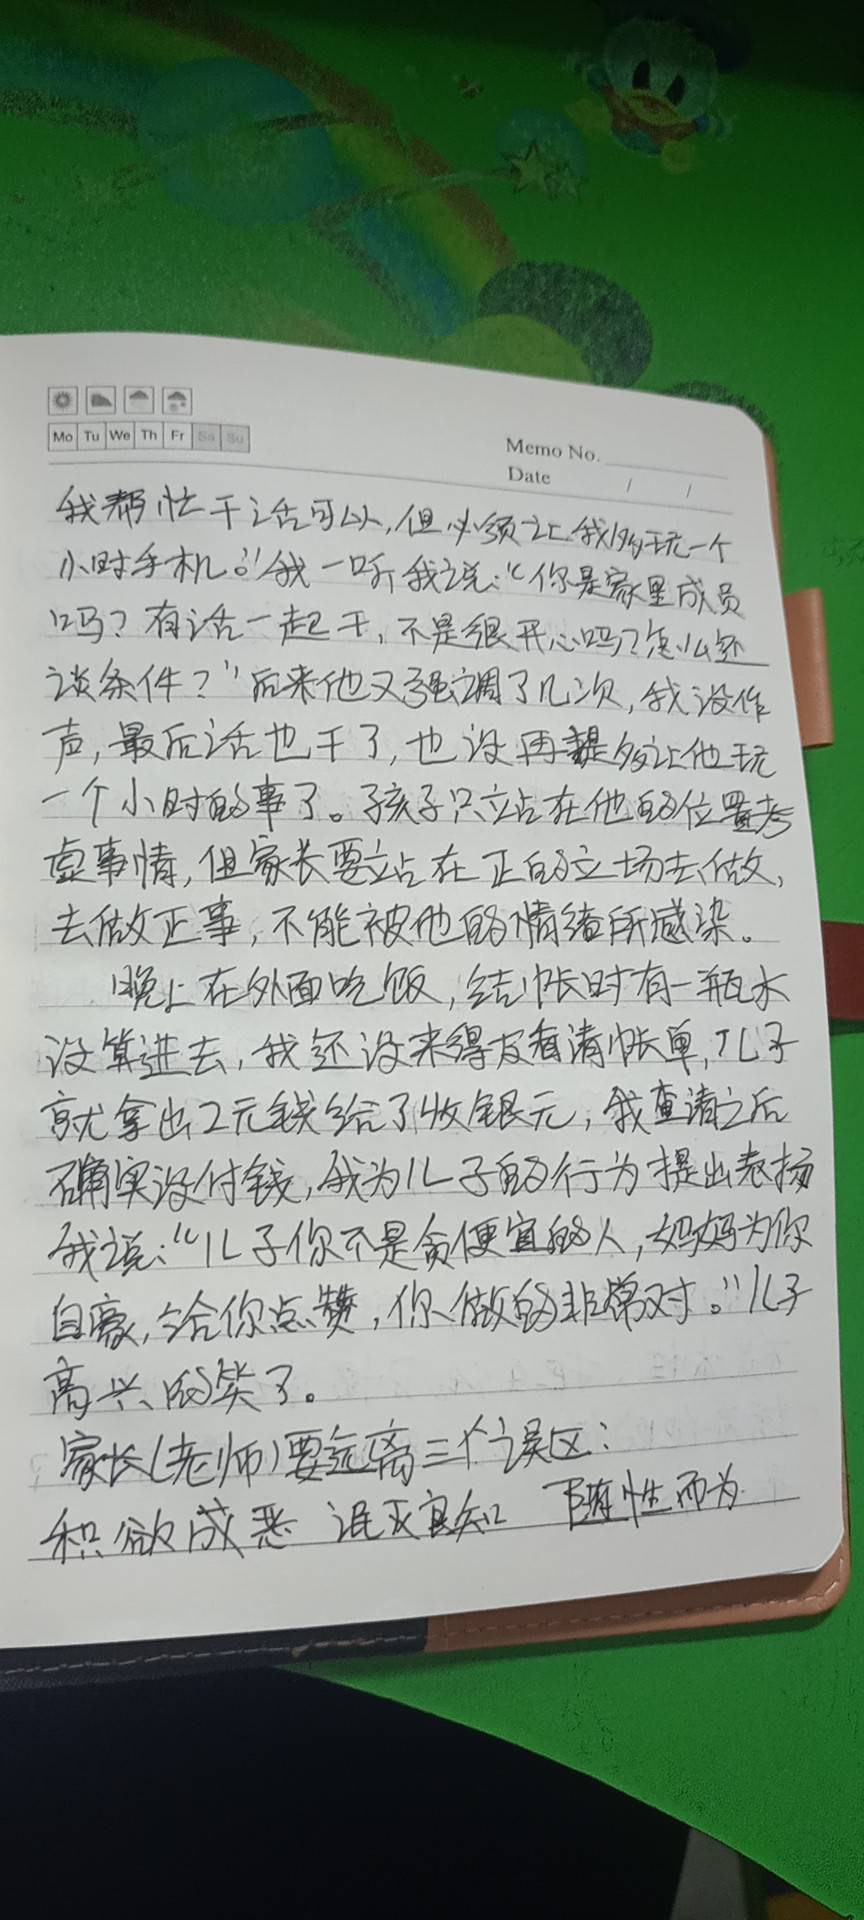 Mo Tu We Th Fr Sa Su
Memo No.
Date / /
我帮忙干活可以,但必须让我多玩一个
小时手机。"我一听我说:"你是家里成员
吗?有活一起干,不是很开心吗?怎么还
谈条件?"后来他又强调了几次,我没作
声,最后活也干了,也没再提多让他玩
一个小时的事了。孩子只站在他的位置考
虑事情,但家长要站在正的立场去做,
去做正事,不能被他的情绪所感染。
晚上在外面吃饭,结帐时有一瓶水
没算进去,我还没来得及看清帐单,儿子
就拿出2元钱给了收银元,我查清之后
确实没付钱,我为儿子的行为提出表扬
我说:"儿子你不是贪便宜的人,妈妈为你
自豪,给你点赞,你做的非常对。"儿子
高兴的笑了。
家长(老师)要远离三个误区:
积欲成恶 泯灭良知 随性而为